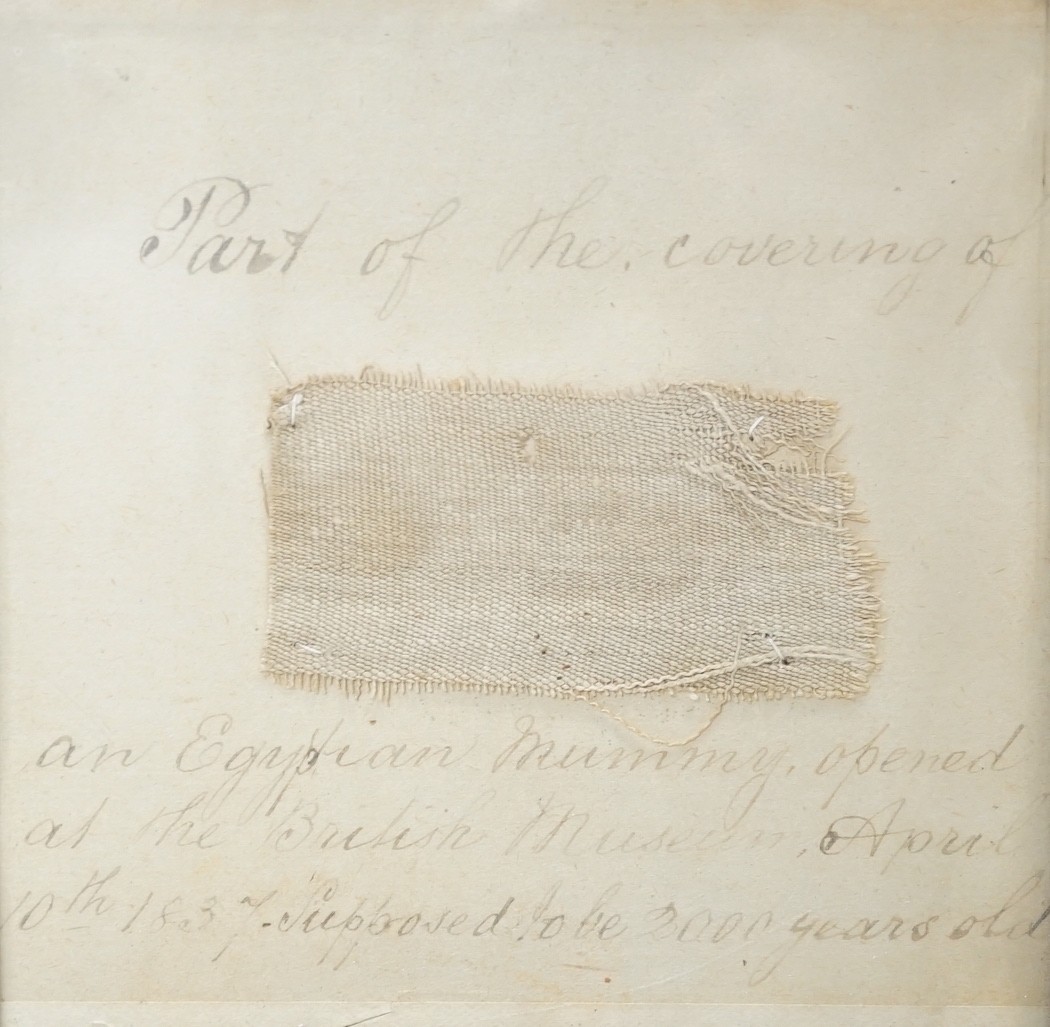 Part of the covering of
an Egyptian Mummy, opened
at the British Museum, April
10th 1837. Supposed to be 2000 years old